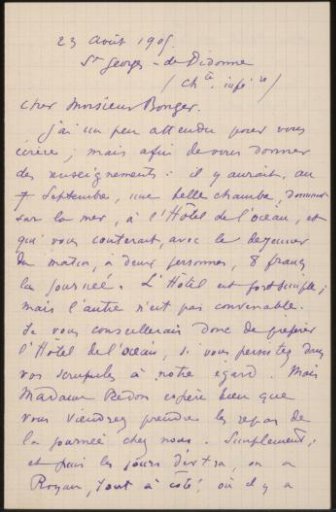 23 Août 1905.
St Georges-de-Didonne
(Chte infre)
Cher Monsieur Bonger.
j'ai un peu attendu pour vous
écrire; mais afin de vous donner
des renseignements: il y aurait, au
7 Septembre, une belle chambre, donnant
sur la mer, à l'Hôtel de l'océan, et
qui vous couterait, avec le dejeuner
du matin, à deux personnes, 8 francs
la journée. L'Hôtel est fort simple;
mais l'autre n'est pas convenable.
Je vous conseillerais donc de préférer
l'Hôtel de l'océan, si vous persistez dans
vos scrupules à notre égard. Mais
Madame Redon espère bien que
vous viendrez prendre les repas de
la journée chez nous. Simplement;
et puis les jours d'extra, on a
Royan, tout à côté, où il y a